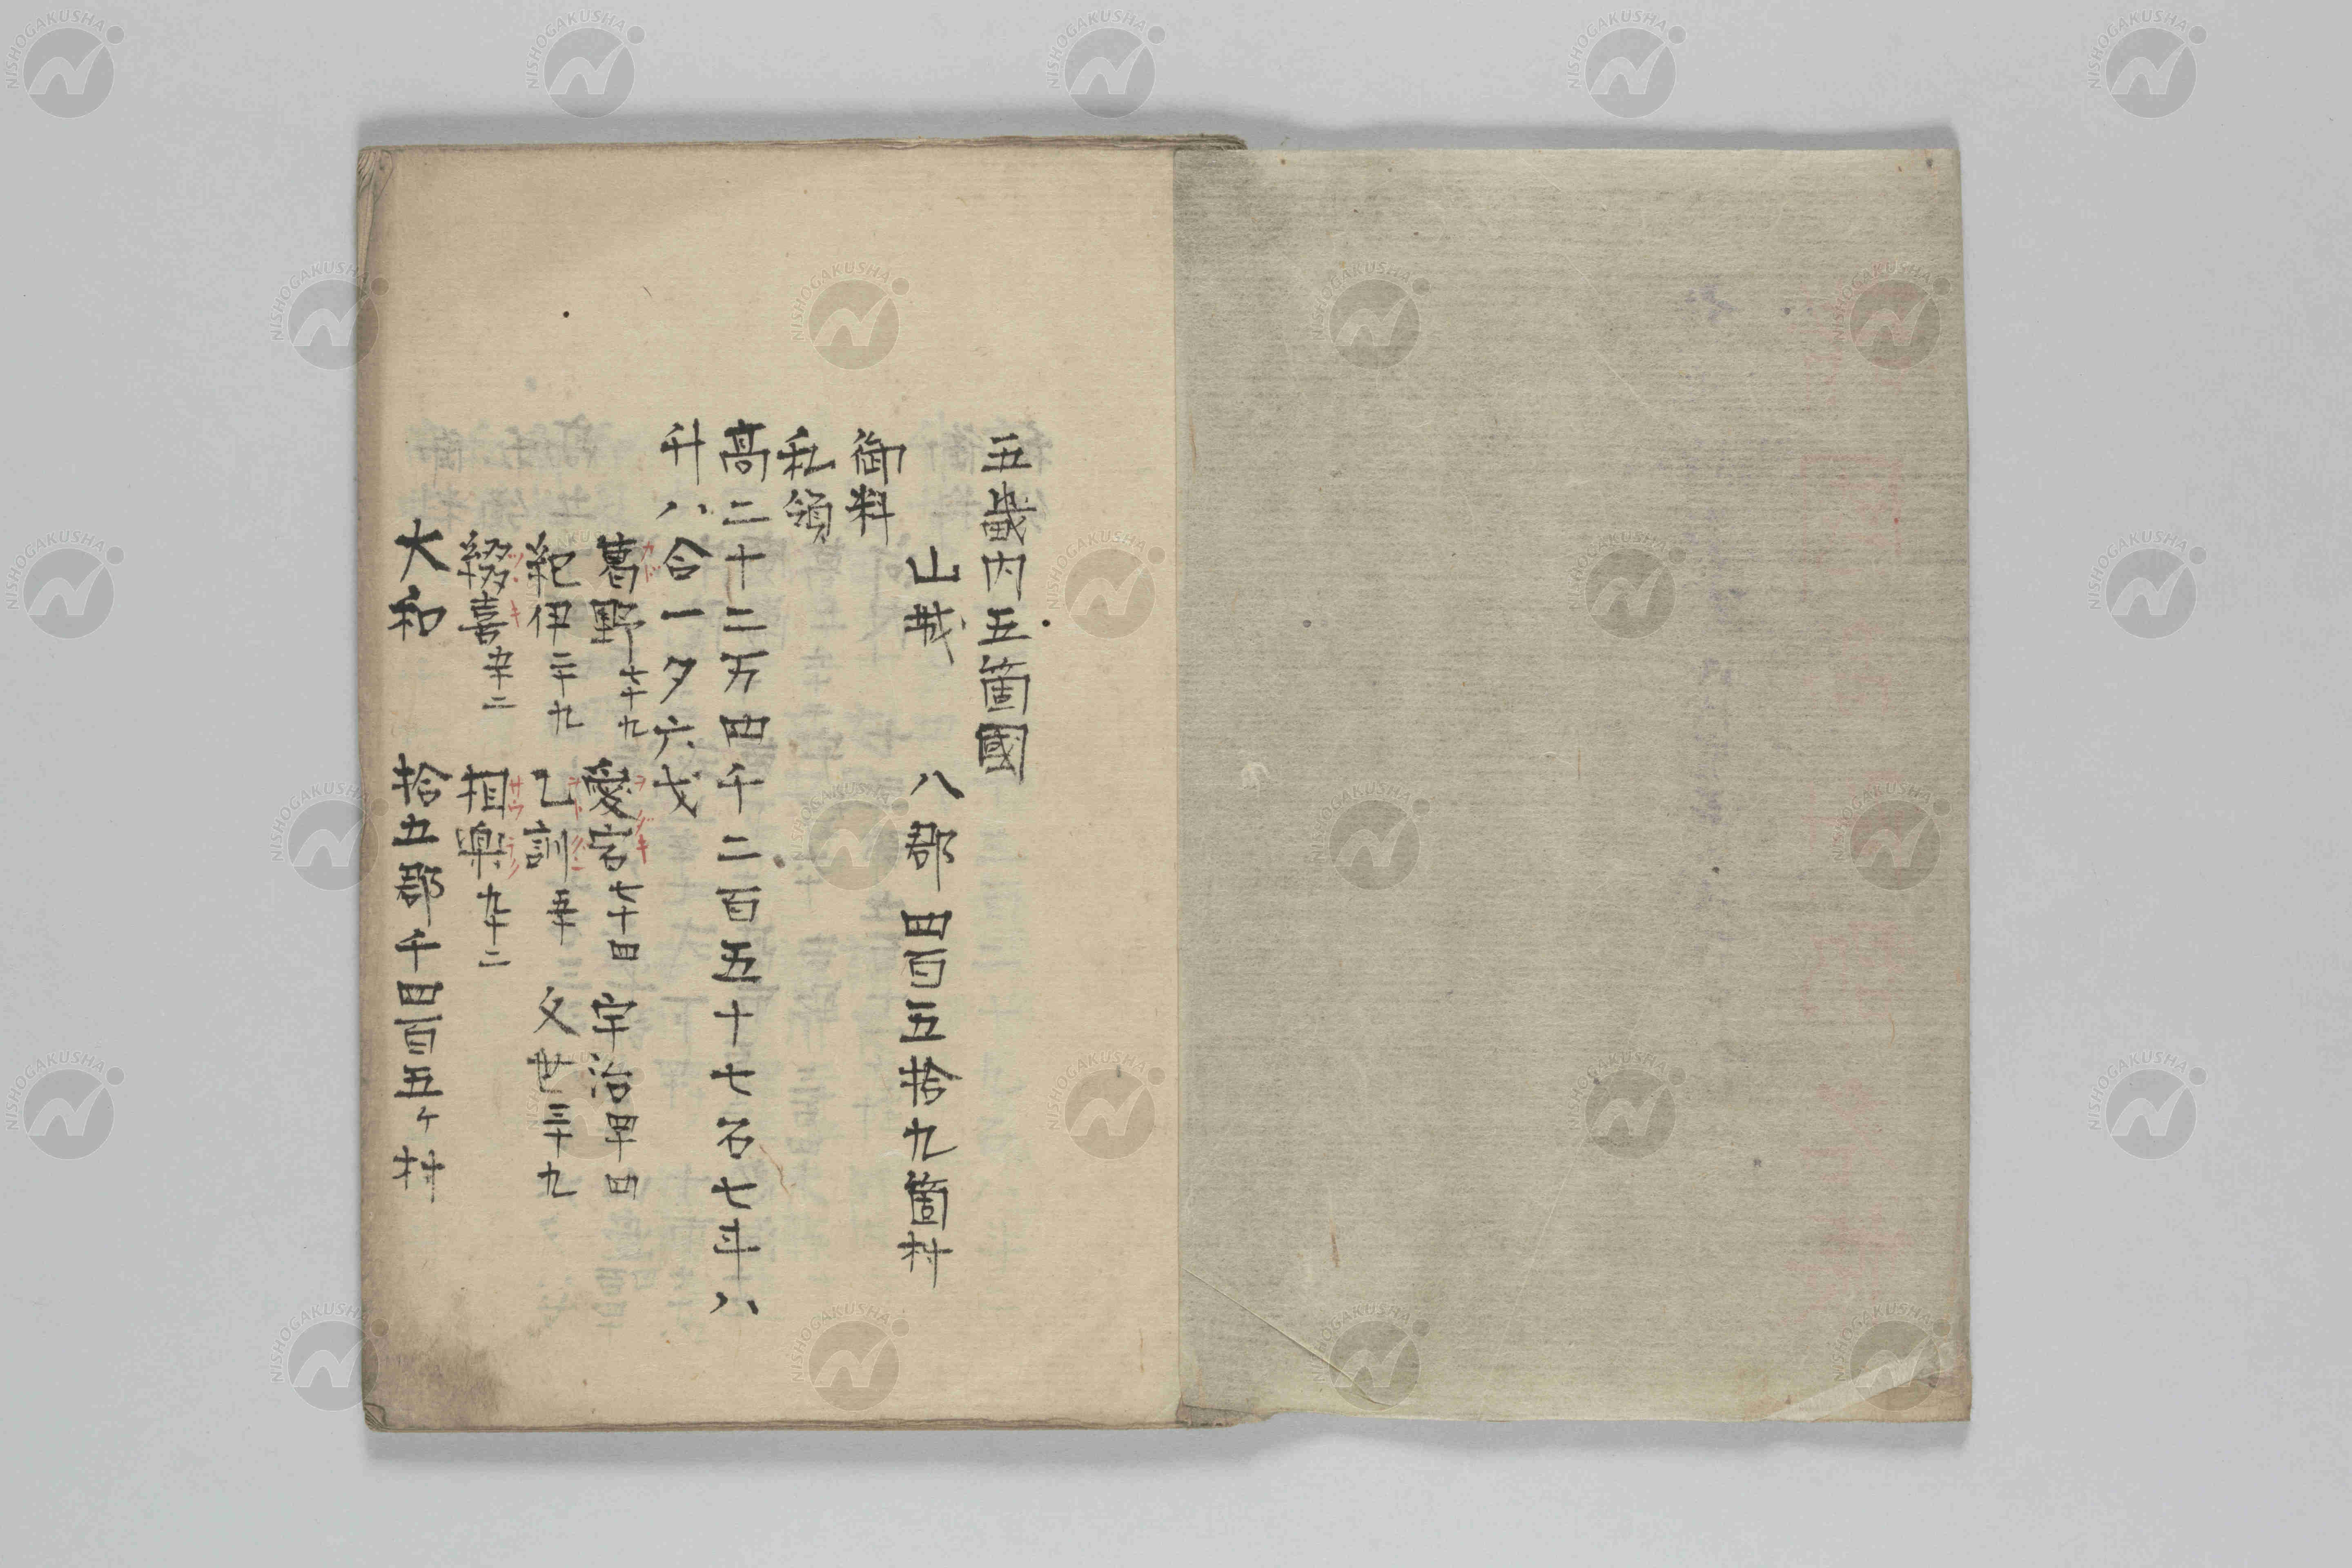 五畿内五箇國
山城　八郡　四百五拾九箇村
御料
私領
高二十二万四千二百五十七石七斗八
升八合一夕六戈
葛野七十九　愛宕七十四　宇治四十四
紀伊二十九　乙訓五十　久世三十九
綴喜五十二　相楽九十二
大和　拾五郡千四百五ケ村
NISHOGAKUSHA